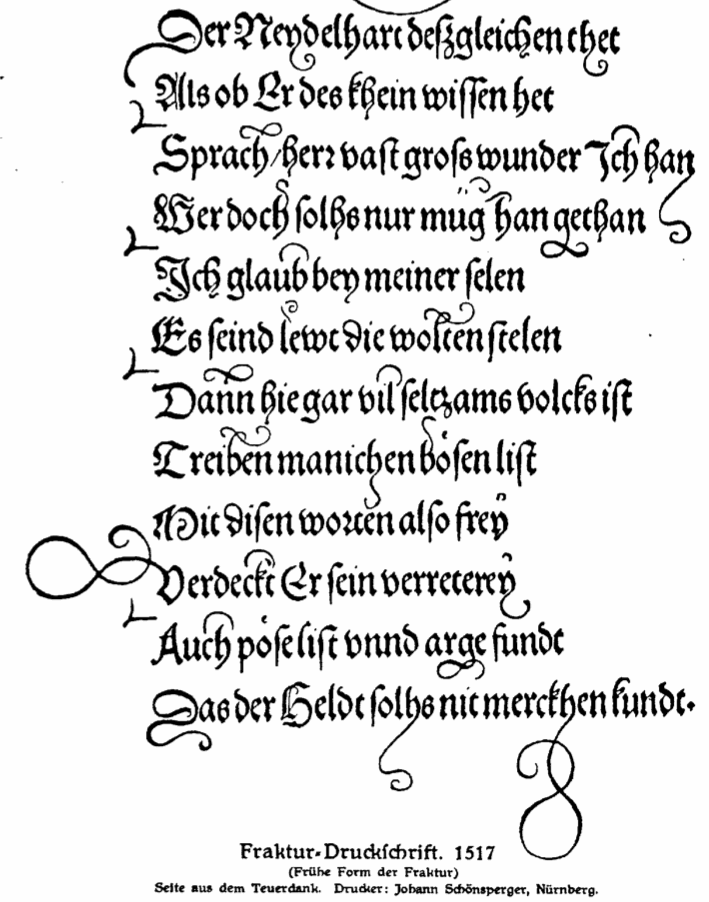 Der Neydelhart deſzgleichen thet
Als ob Er des khein wiſſen het
Sprach / herr vaſt groſs wunder Ich han
Wer doch ſolhs nur müg han gethan
Ich glaub bey meiner ſelen
Es ſeind lewt die wolten ſtelen
Dann hie gar vil ſeltzams volcks iſt
Treiben manichen böſen liſt
Mit diſen worten alſo freÿ
Verdeckt Er ſein verretereÿ
Auch pöſe liſt vnnd arge fundt
Das der Heldt ſolhs nit merckhen kundt.
Fraktur-Druckſchrift. 1517
(Frühe Form der Fraktur)
Seite aus dem Teuerdank. Drucker: Johann Schönsperger, Nürnberg.